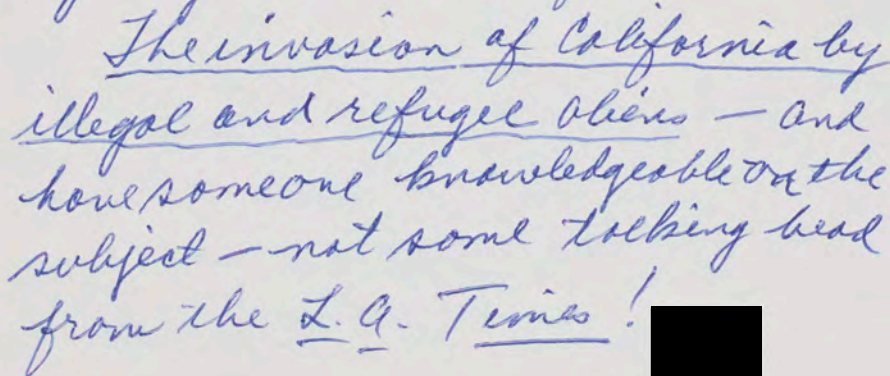 The invasion of California by
illegal and refugee aliens — and
have someone knowledgeable on the
subject — not some talking head
from the L.A. Times!